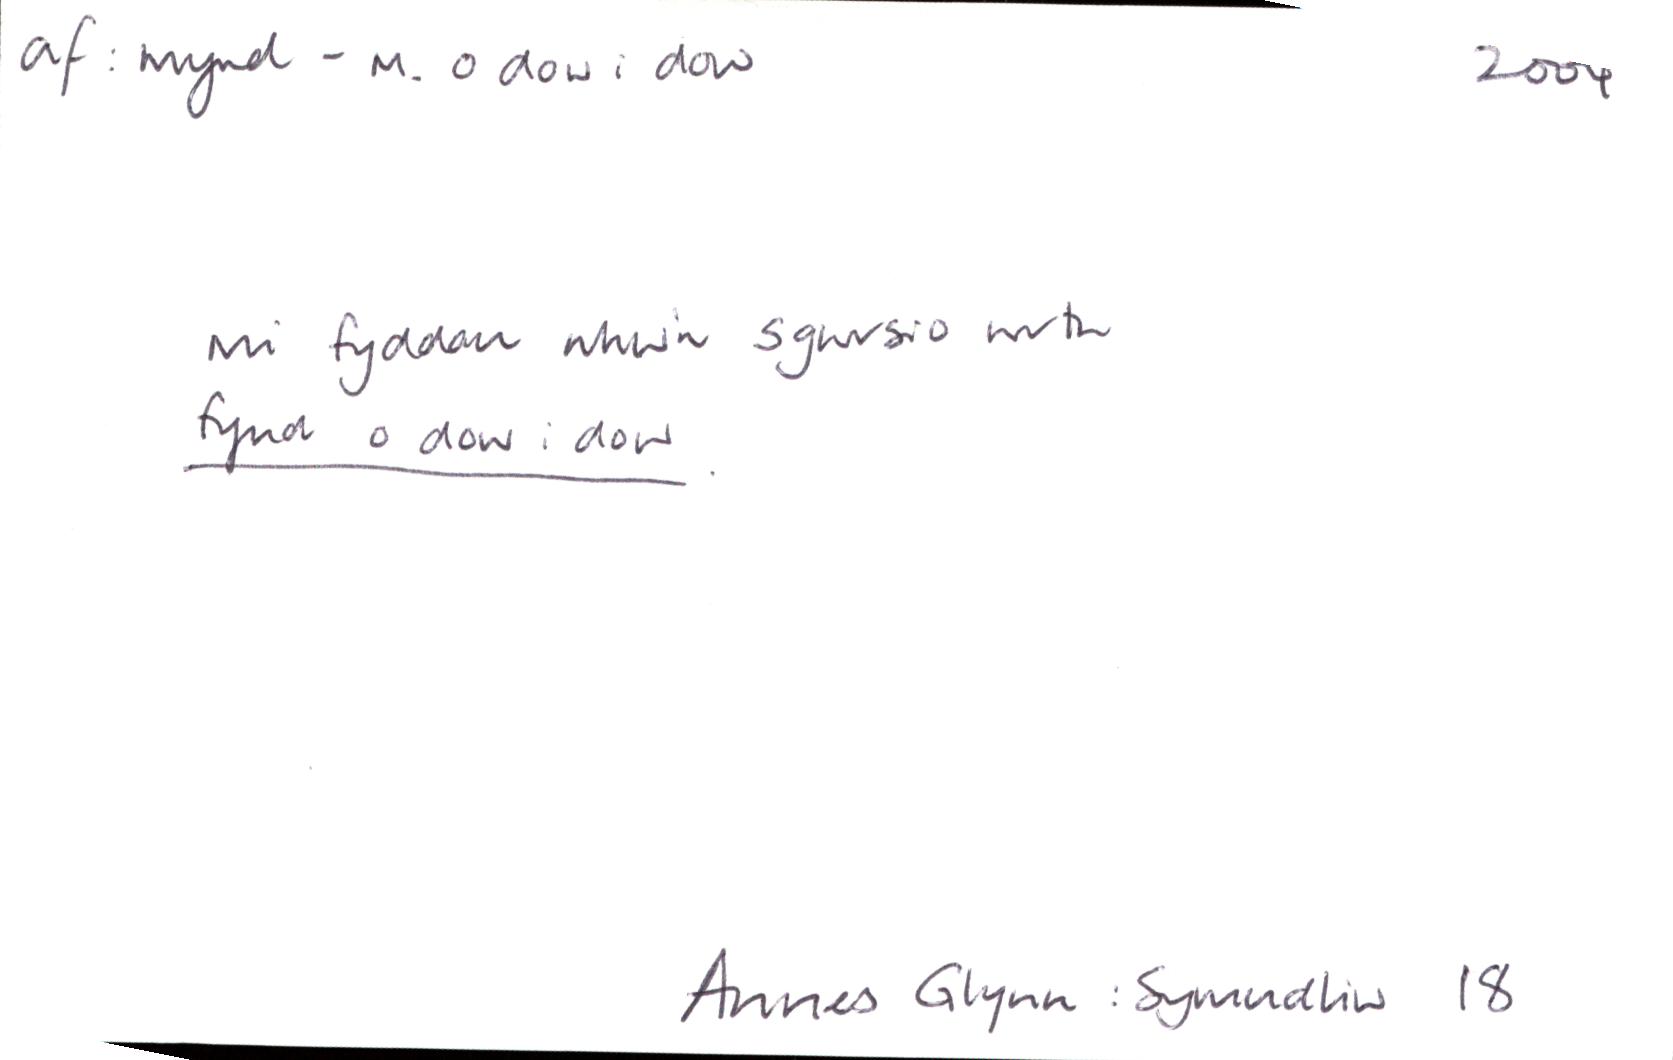 af: mynd - m. o dow i dow 2004
mi fyddan nhw'n sgwrsio wrth
fynd o dow i dow.
Annes Glynn : Symudliw 18